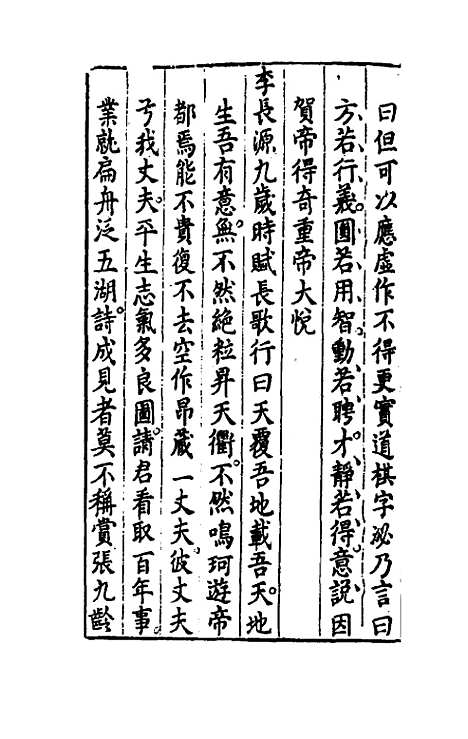 曰但可以應虛作不得更實道棋字泌乃言曰
方若行義。圓若用智。動若聘才。靜若得意。説因
賀帝得奇童帝大悅
李長源九歲時賦長歌行曰天覆吾地載吾天。地
生吾有意無。不然絶粒昇天衢。不然鳴珂遊帝
都焉能不貴復不去空作昂藏一丈夫。彼丈夫
兮我丈夫。平生志氣多良圖。請君看取百年事。
業就扁舟泛五湖。詩成見者莫不稱賞張九齡